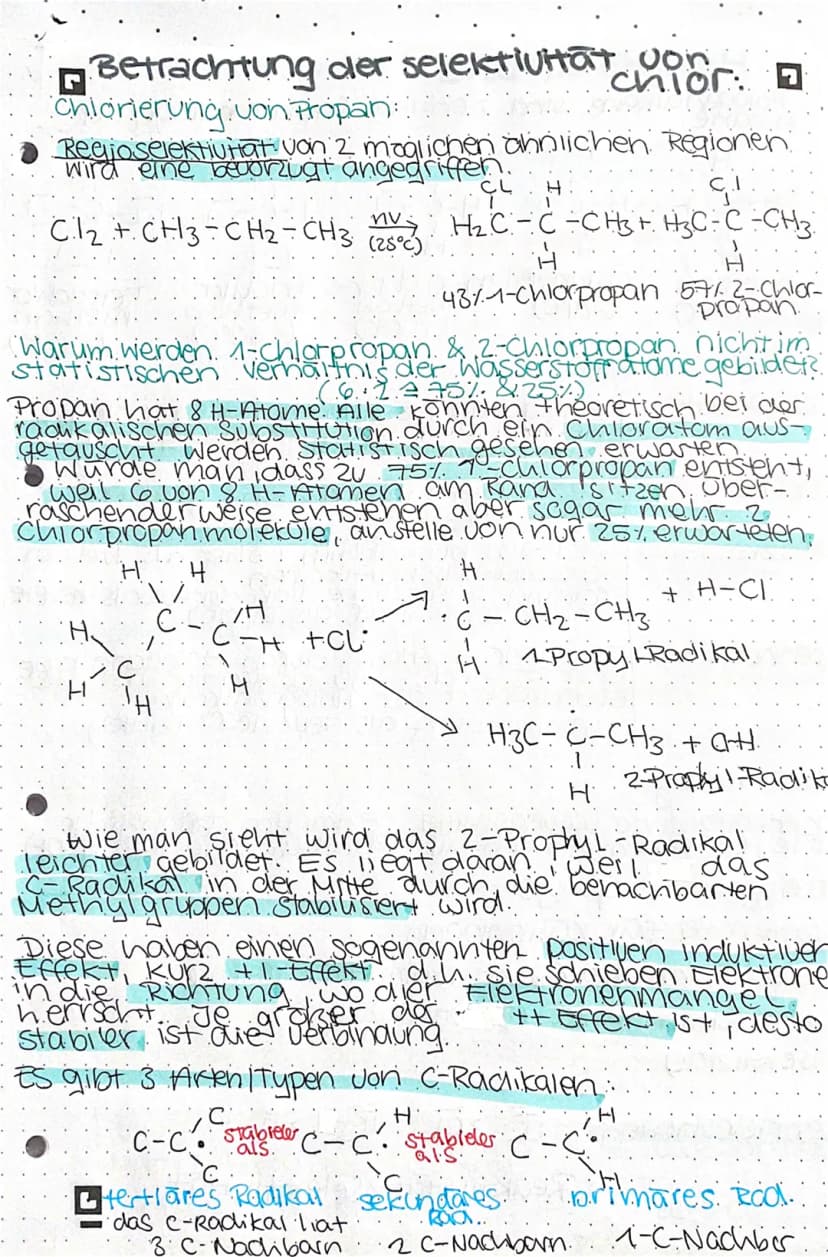 Betrachtung der Selektivität von
Chlor:
Chlorierung von Propan:
Regioselektivität von 2 möglichen ähnlichen Regionen
wird eine bevorzugt angegriffen.
Cl H Cl
Cl2 + CH3-CH2-CH3 hν (25°C) → H2C-C-CH3 + H3C-C-CH3
H H
43% 1-Chlorpropan 57% 2-Chlor-
propan
Warum werden 1-Chlorpropan & 2-Chlorpropan nicht im
statistischen Verhältnis der Wasserstoffatome gebildet?
(6:2 ≙ 75% & 25%)
Propan hat 8 H-Atome. Alle könnten theoretisch bei der
radikalischen Substitution durch ein Chloratom aus-
getauscht werden. Statistisch gesehen erwarten
würde man, dass zu 75% 1-Chlorpropan entsteht,
weil 6 von 8 H-Atomen am Rand sitzen, Über-
raschenderweise entstehen aber sogar mehr 2
Chlorpropanmoleküle, anstelle von nur 25% erwarteten.
H H H
C - C H - H + Cl· → ·C - CH2 - CH3 + H-Cl
H H C H H H 1-Propyl-Radikal
H3C-C-CH3 + Cl-H
H 2-Prophyl-Radik
Wie man sieht wird das 2-Prophyl-Radikal
leichter gebildet. Es liegt daran, weil das
C-Radikal in der Mitte durch die benachbarten
Methylgruppen stabilisiert wird.
Diese haben einen sogenannten positiven induktiven
Effekt, kurz +I-Effekt d.h. sie schieben Elektrone
in die Richtung, wo der Elektronenmangel
herrscht. Je größer der +I Effekt ist, desto
stabiler ist die Verbindung.
Es gibt 3 Arten/Typen von C-Radikalen:
C-C· C C stabieler als C-C· H C stabieler als C-C· H H
tertiäres Radikal sekundäres Rad. primäres Rad.
das C-Radikal hat
3 C-Nachbarn 2 C-Nachbarn 1-C-Nachbar